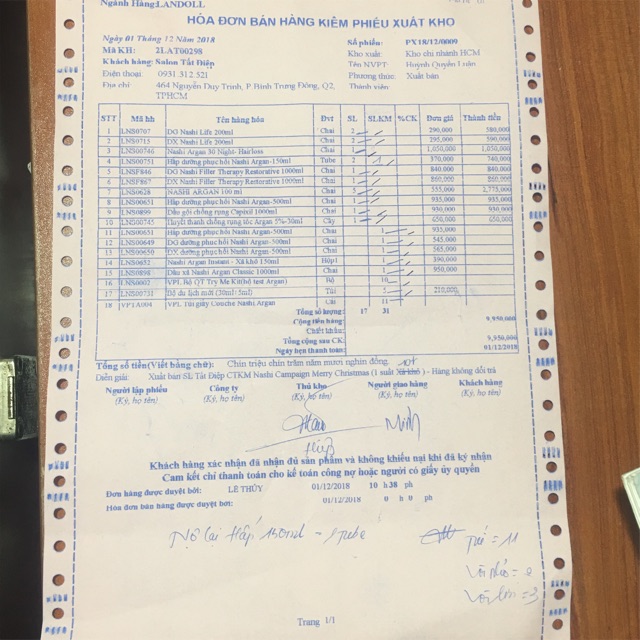 Ngành Hàng: LANDOLL
HÓA ĐƠN BÁN HÀNG KIÊM PHIẾU XUẤT KHO
Ngày 01 Tháng 12 Năm 2018 Số phiếu: PX18/12/0009
Mã KH: 2LAT00298 Kho xuất: Kho chi nhánh HCM
Khách hàng: Salon Tất Điệp Tên NVPT: Huỳnh Quyền Luân
Điện thoại: 0931 312 521 Phương thức: Xuất bán
Địa chỉ: 464 Nguyễn Duy Trinh, P Bình Trưng Đông, Q2, Thành viên:
TPHCM
STT Mã hh Tên hàng hóa Đvt SL SLKM %CK Đơn giá Thành tiền
1 LNS0707 DG Nashi Life 200ml Chai 2 290,000 580,000
2 LNS0715 DX Nashi Life 200ml Chai 2 295,000 590,000
3 LNS00746 Nashi Argan 30 Night- Hairloss Chai 1 1,050,000 1,050,000
4 LNS00751 Hấp dưỡng phục hồi Nashi Argan-150ml Tube 2 370,000 740,000
5 LNSF846 DG Nashi Filler Therapy Restorative 1000ml Chai 1 840,000 840,000
6 LNSF867 DX Nashi Filler Therapy Restorative 1000ml Chai 1 860,000 860,000
7 LNS0628 NASHI ARGAN 100 ml Chai 5 555,000 2,775,000
8 LNS00631 Hấp dưỡng phục hồi Nashi Argan-500ml Chai 1 935,000 935,000
9 LNS0899 Dầu gội chống rụng Capixil 1000ml Chai 1 930,000 930,000
10 LNS00745 Huyết thanh chống rụng tóc Argan 5%-30ml Cây 1 650,000 650,000
11 LNS00631 Hấp dưỡng phục hồi Nashi Argan-500ml Chai 1 935,000
12 LNS00649 DG dưỡng phục hồi Nashi Argan-500ml Chai 1 545,000
13 LNS00650 DX dưỡng phục hồi Nashi Argan-500ml Chai 1 565,000
14 LNS0652 Nashi Argan Instant - Xả khô 150ml Hộp1 1 390,000
15 LNS0898 Dầu xả Nashi Argan Classic 1000ml Chai 1 950,000
16 LNS0002 VPL Bộ QT Try Me Kit(bộ test Argan) Bộ 10
17 LNS00731 Bộ du lịch mới (30ml/ 5ml) Túi 5 210,000
18 VPTA004 VPL Túi giấy Couche Nashi Argan Cái 11
Tổng số lượng: 17 31
Cộng tiền hàng: 9,950,000
Chiết khấu:
Tổng cộng sau CK: 9,950,000
Ngày hẹn thanh toán: 01/12/2018
Tổng số tiền(Viết bằng chữ): Chín triệu chín trăm năm mươi nghìn đồng.
Diễn giải: Xuất bán SL Tất Điệp CTKM Nashi Campaign Merry Christmas (1 suất Xả khô) - Hàng không đổi trả
Người lập phiếu Công ty Thủ kho Người giao hàng Khách hàng
(Ký, họ tên) (Ký, họ tên) (Ký, họ tên) (Ký, họ tên) (Ký, họ tên)
Minh
Khách hàng xác nhận đã nhận đủ sản phẩm và không khiếu nại khi đã ký nhận
Cam kết chỉ thanh toán cho kế toán công nợ hoặc người có giấy ủy quyền
Đơn hàng được duyệt bởi: LÊ THÚY 01/12/2018 10 h 38 ph
Hóa đơn bán hàng được duyệt bởi: 01/12/2018 0 h 0 ph
Nợ lại Hấp 150ml - 2 tube
= 11
Trang 1/1